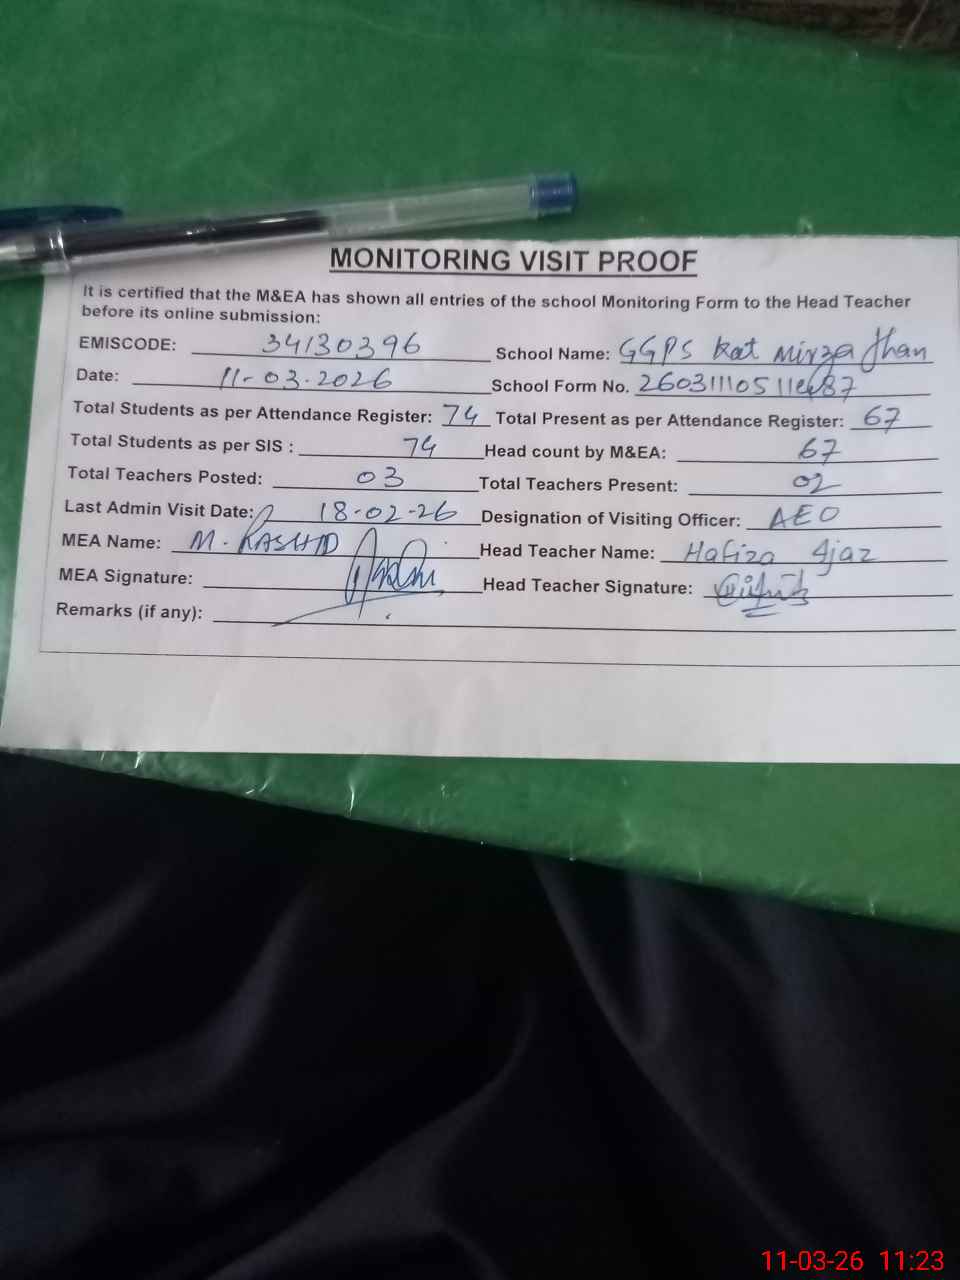 MONITORING VISIT PROOF
It is certified that the M&EA has shown all entries of the school Monitoring Form to the Head Teacher
before its online submission:
EMISCODE: 34130396 School Name: GGPS Kot Mirza Jhan
Date: 11-03-2026 School Form No.
Total Students as per Attendance Register: 74 Total Present as per Attendance Register: 67
Total Students as per SIS : 74 Head count by M&EA: 67
Total Teachers Posted: 03 Total Teachers Present: 02
Last Admin Visit Date: 18-02-26 Designation of Visiting Officer: AEO
MEA Name: M. RASHID Head Teacher Name: Hafiza Ajaz
MEA Signature: Head Teacher Signature:
Remarks (if any):
11-03-26 11:23